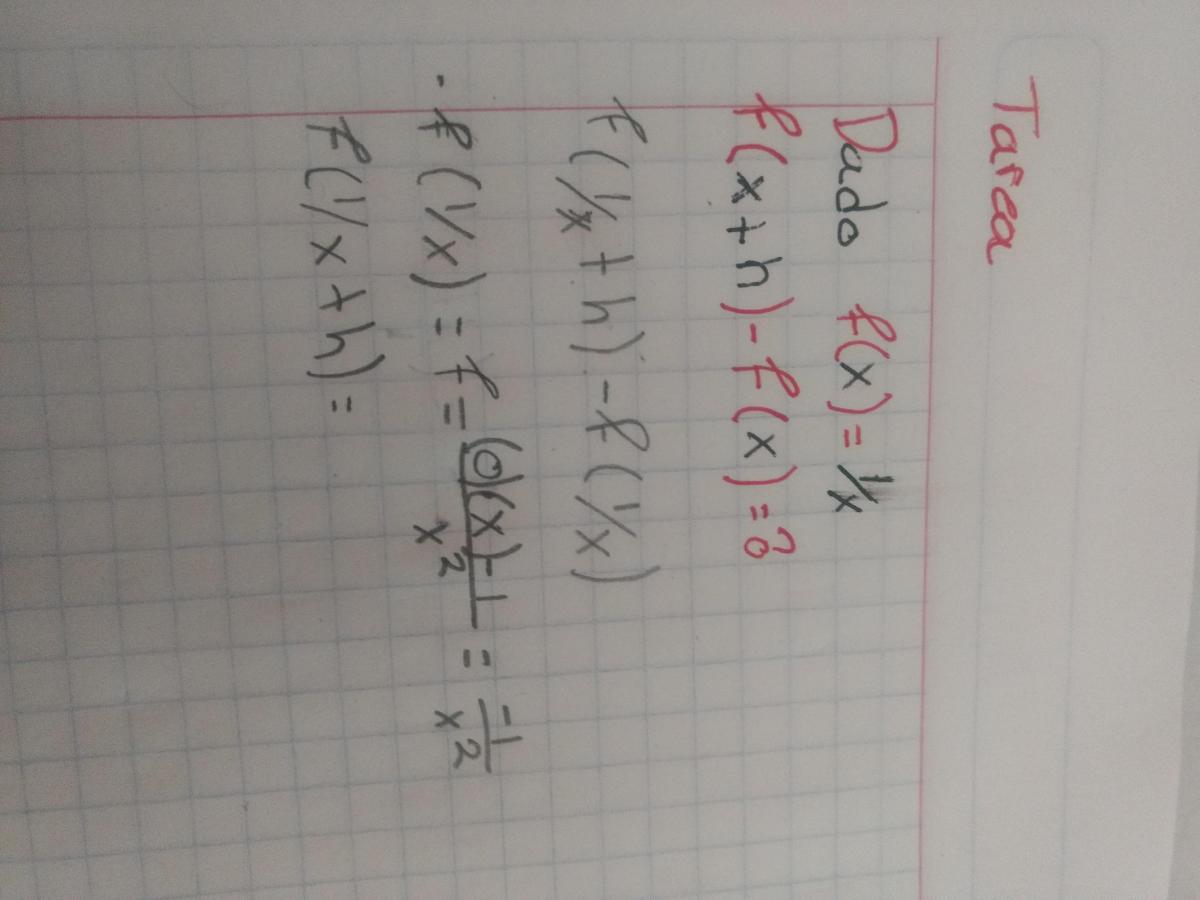 Tarea
Dado f(x) = 1/x
f(x+h) - f(x) = ?
f(1/x + h) - f(1/x)
- f(1/x) = f = (0)(x) - 1 / x² = -1 / x²
f(1/x + h) =